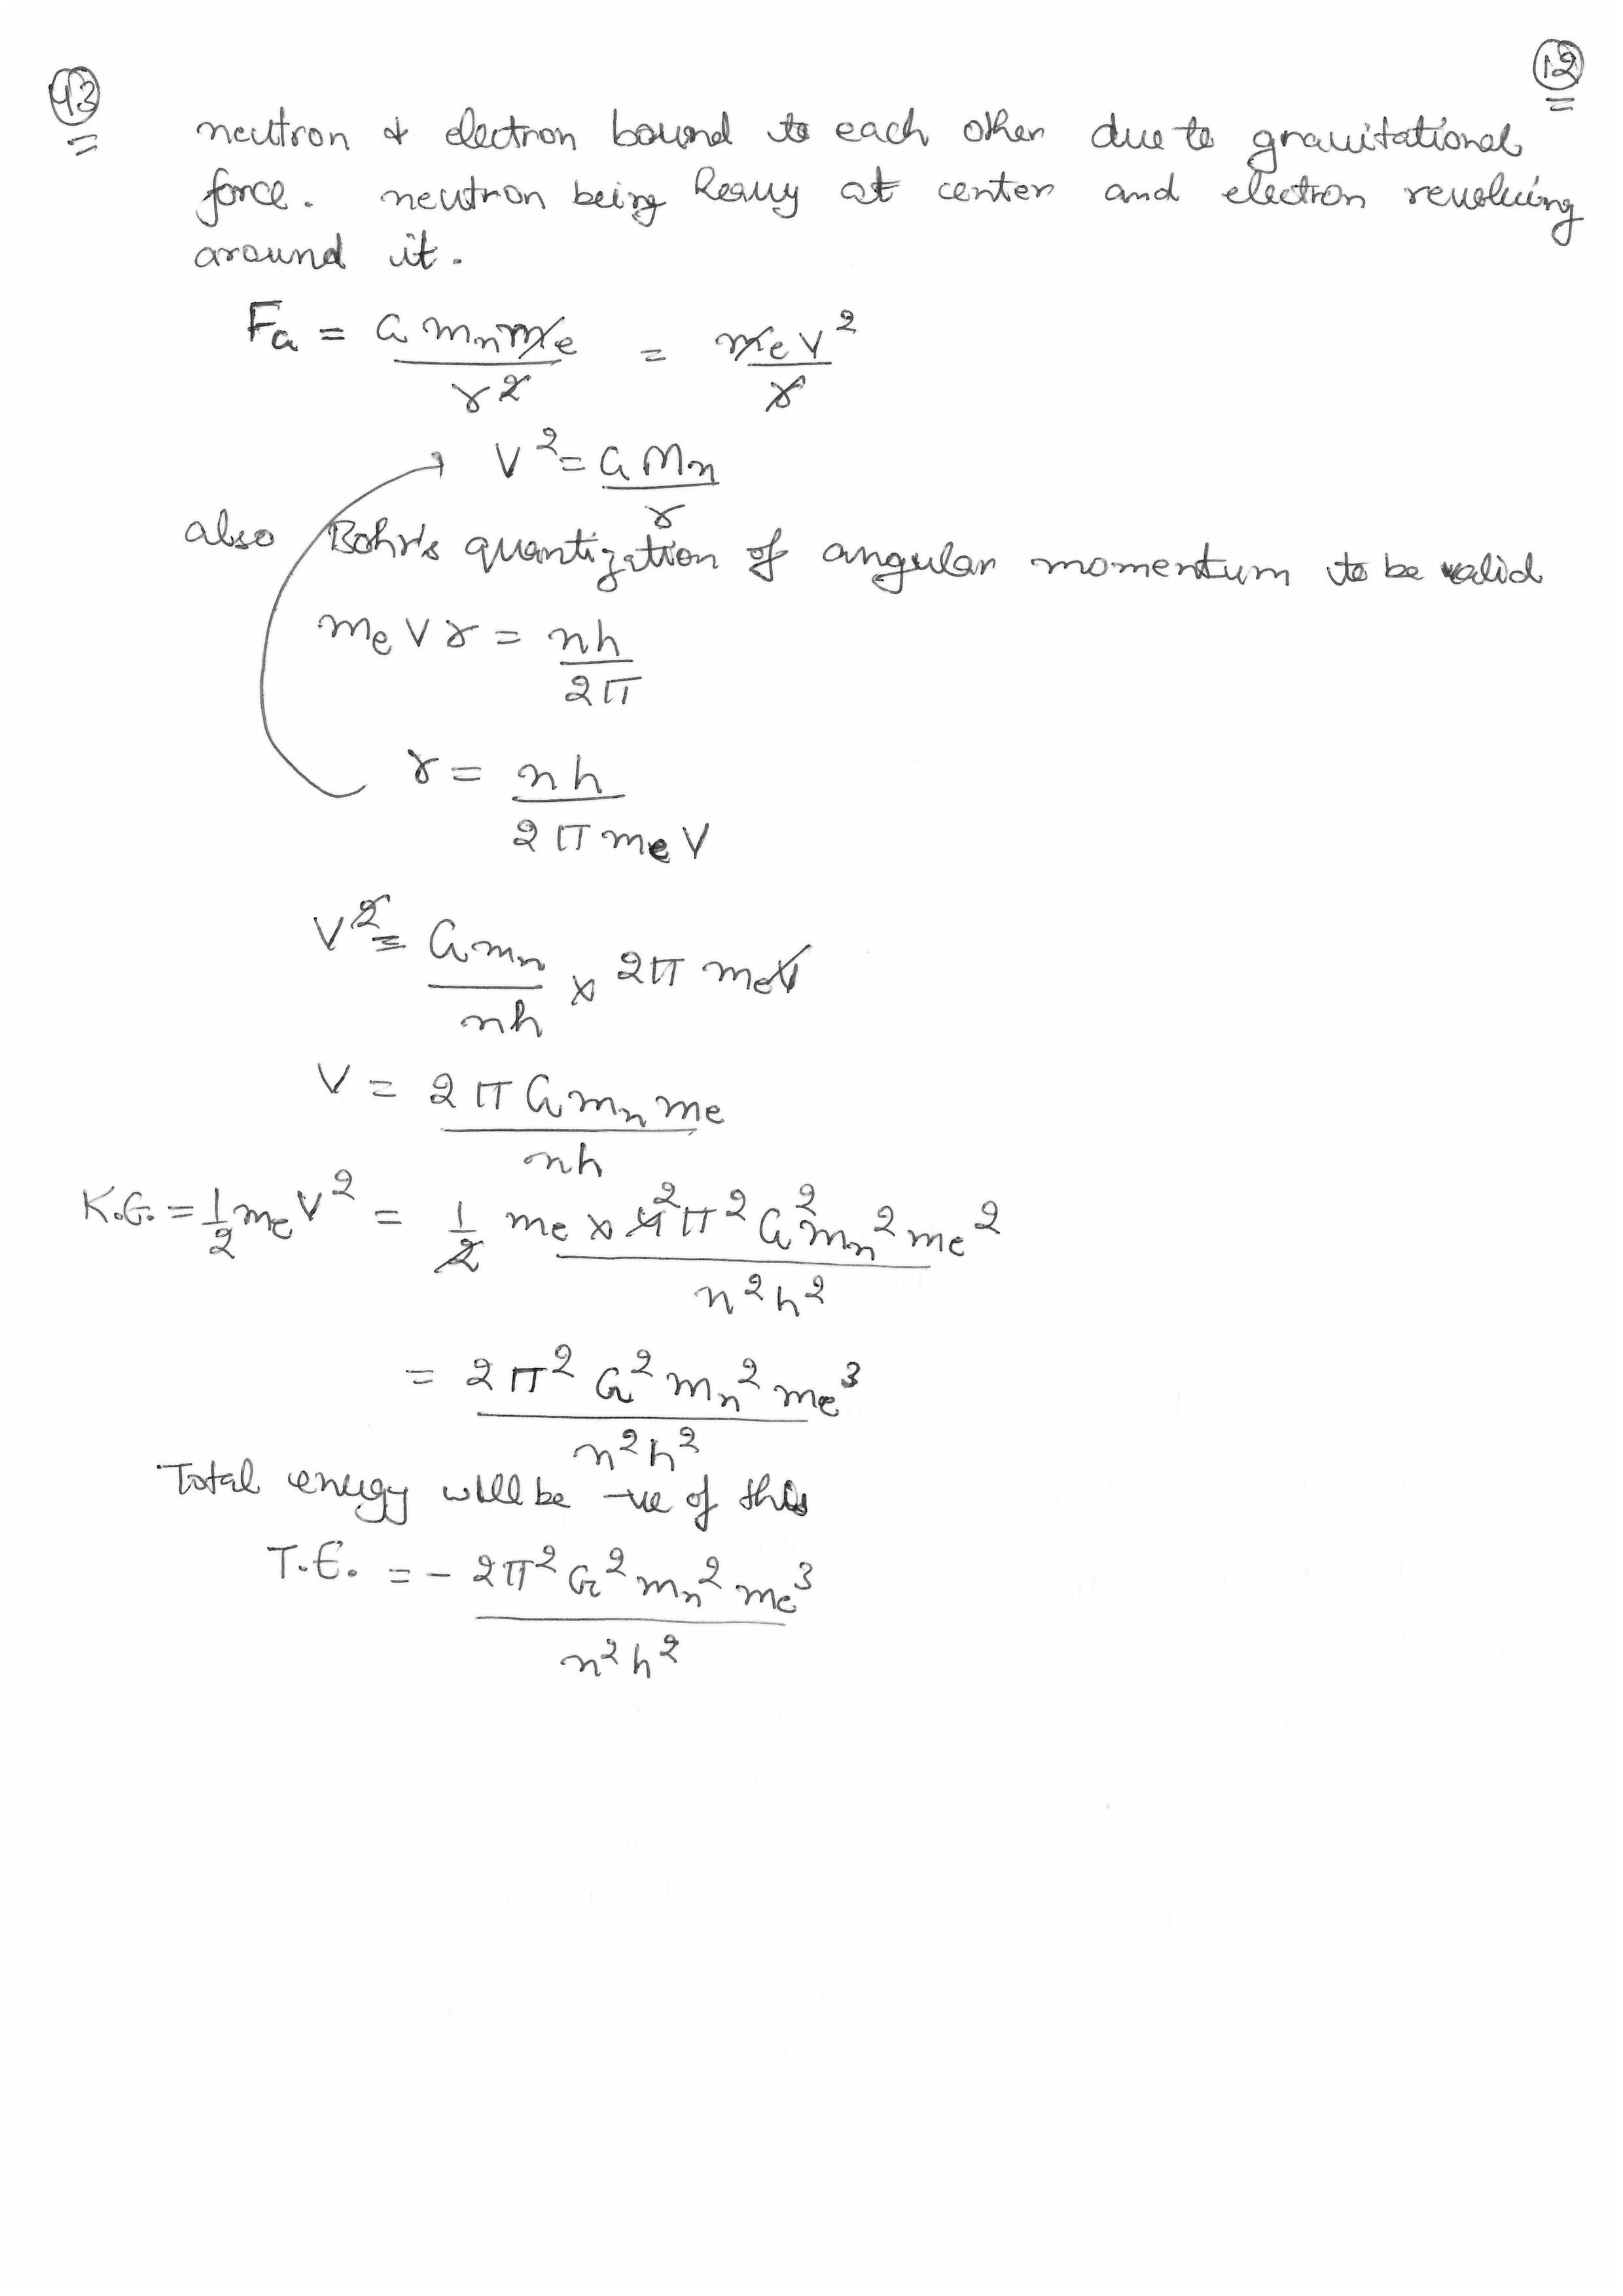 43
12
neutron & electron bound to each other due to gravitational
force. neutron being heavy at center and electron revolving
around it.
F_G = G m_n m_e / r^2 = m_e v^2 / r
v^2 = G M_n / r
also Bohr's quantization of angular momentum to be valid
m_e v r = nh / 2π
r = nh / 2π m_e v
v^2 = G m_n / nh × 2π m_e v
v = 2π G m_n m_e / nh
K.E. = 1/2 m_e v^2 = 1/2 m_e × 4^2 π^2 G^2 m_n^2 m_e^2 / n^2 h^2
= 2π^2 G^2 m_n^2 m_e^3 / n^2 h^2
Total energy will be -ve of this
T.E. = - 2π^2 G^2 m_n^2 m_e^3 / n^2 h^2